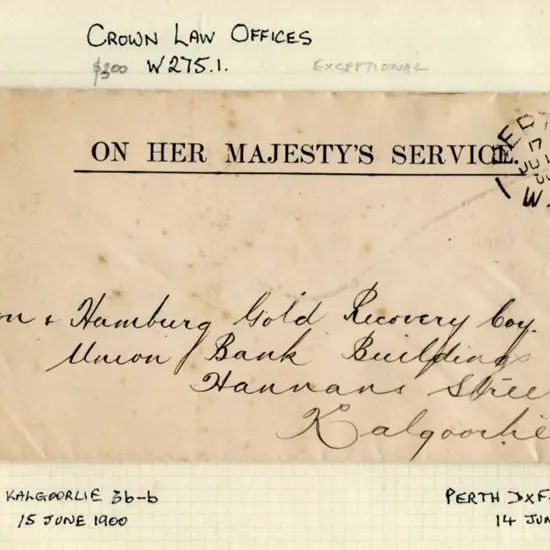 CROWN LAW OFFICES
$300 W275.1. EXCEPTIONAL
ON HER MAJESTY'S SERVICE.
PERT
W
on & Hamburg Gold Recovery Coy.
Union Bank Buildings
Hannans Stree
Kalgoorlie
KALGOORLIE 3b-b
15 JUNE 1900
PERTH DXF
14 JUN